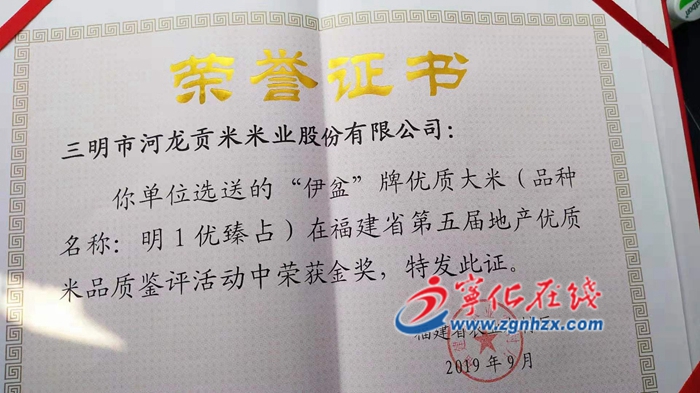 荣誉证书
三明市河龙贡米米业股份有限公司：
你单位选送的“伊盆”牌优质大米（品种
名称：明1优臻占）在福建省第五届地产优质
米品质鉴评活动中荣获金奖，特发此证。
寧化在线
www.zgnhzx.com
福建省农
2019年9月